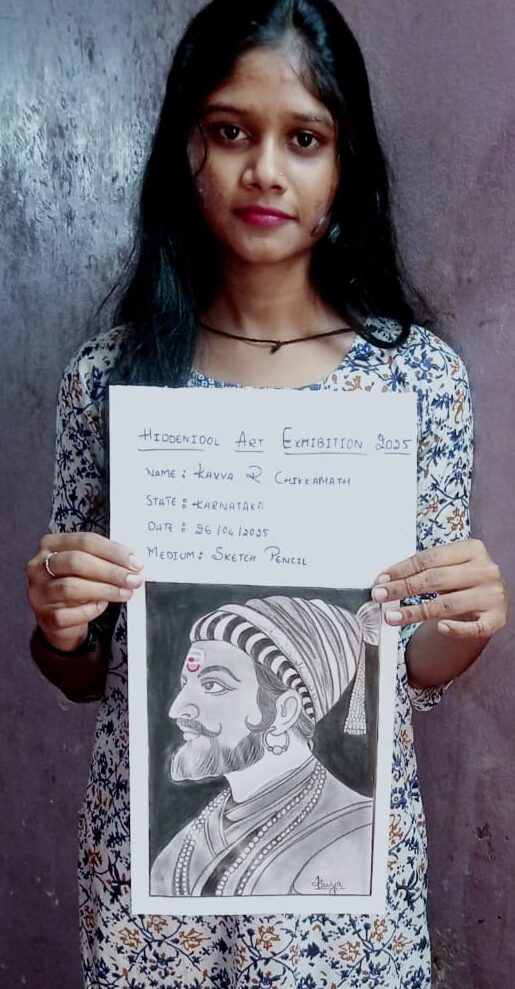 HIDDENIDOL ART EXHIBITION 2025
NAME : KAVYA R CHIKKAMATH
STATE : KARNATAKA
DATE : 26/04/2025
MEDIUM : SKETCH PENCIL
Kavya